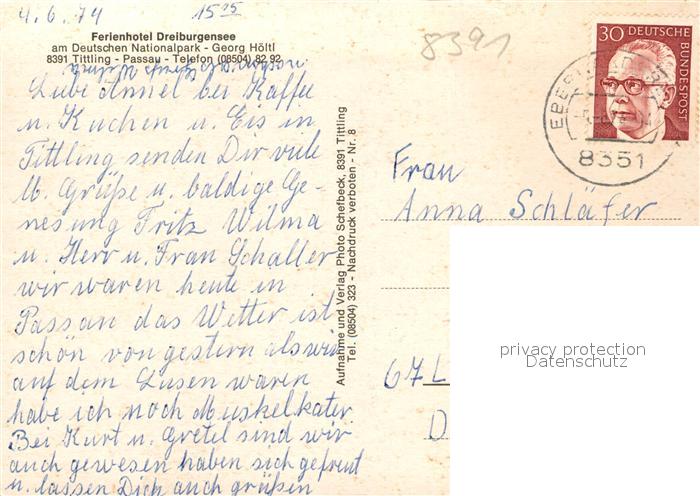 4.6.74 15 25
Ferienhotel Dreiburgensee
am Deutschen Nationalpark - Georg Höltl
8391 Tittling - Passau - Telefon (08504) 82 92
Liebe Annel bei Kaffee
u. Kuchen u. Eis in
Tittling senden Dir viele
lb. Grüße u. baldige Ge-
nesung Fritz Wilma
u. Herr u. Frau Schaller
wir waren heute in
Passau das Wetter ist
schön von gestern als wir
auf dem Lusen waren
habe ich noch Muskelkater
Bei Kurt u. Gretel sind wir
auch gewesen haben sich gefreut
u. lassen Dich auch grüßen
Aufnahme und Verlag Photo Schefbeck, 8391 Tittling
Tel. (08504) 323 - Nachdruck verboten - Nr. 8
8391
30 DEUTSCHE
BUNDESPOST
8351
Frau
Anna Schläfer
67 L
D
privacy protection
Datenschutz